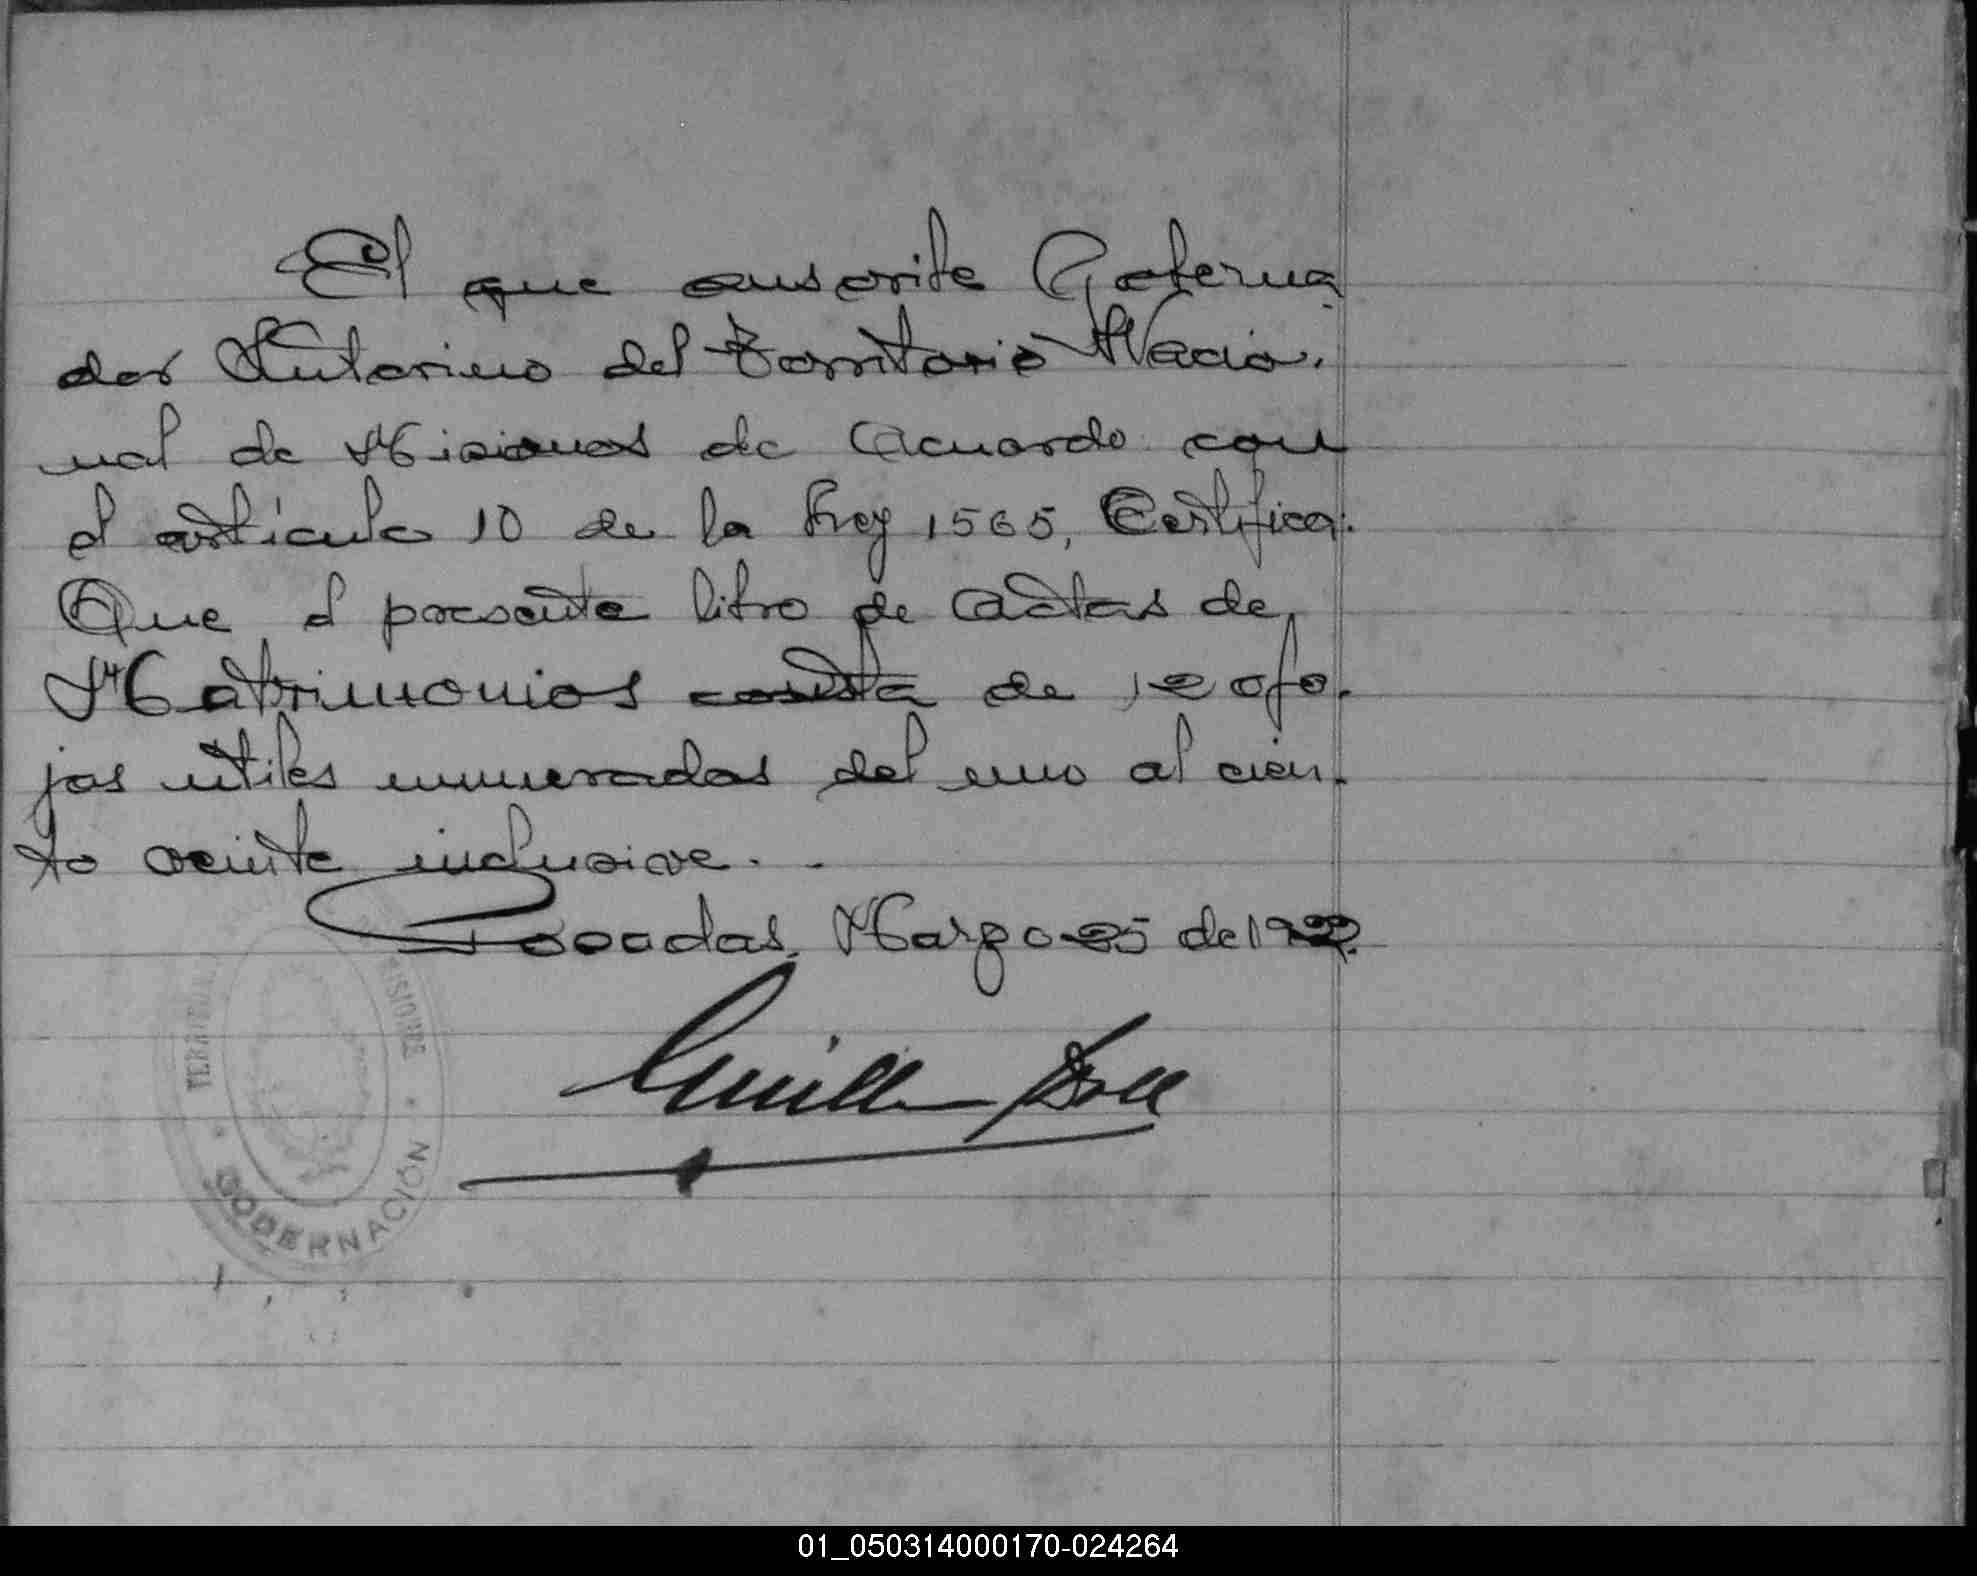 El que suscribe Goberna
dor Interino del Territorio Nacio.
nal de Misiones de Acuerdo con
el artículo 10 de la Ley 1565, Certifica:
Que el presente libro de Actas de
Matrimonios consta de 120 fo.
jas utiles numeradas del uno al cien.
to veinte inclusive. -
Posadas, Marzo 25 de 1922.
Guillermo Doll
TERRITORIO MISIONES
GOBERNACIÓN
01_050314000170-024264